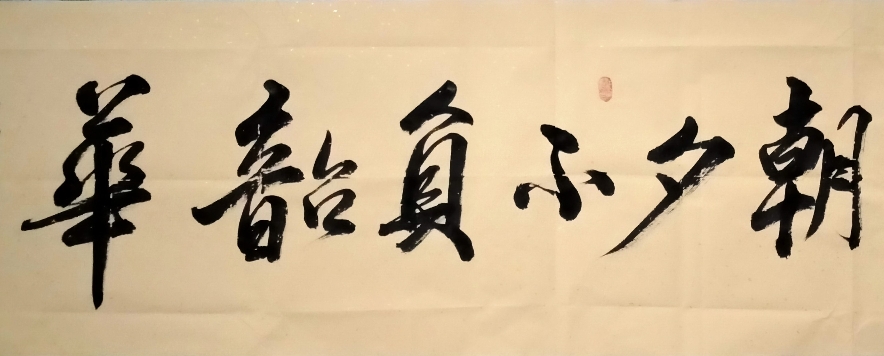 朝夕不負韶華